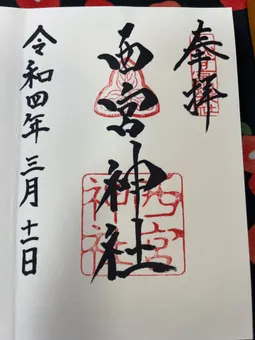 奉拝
西宮神社
令和四年三月十一日
西宮
神社